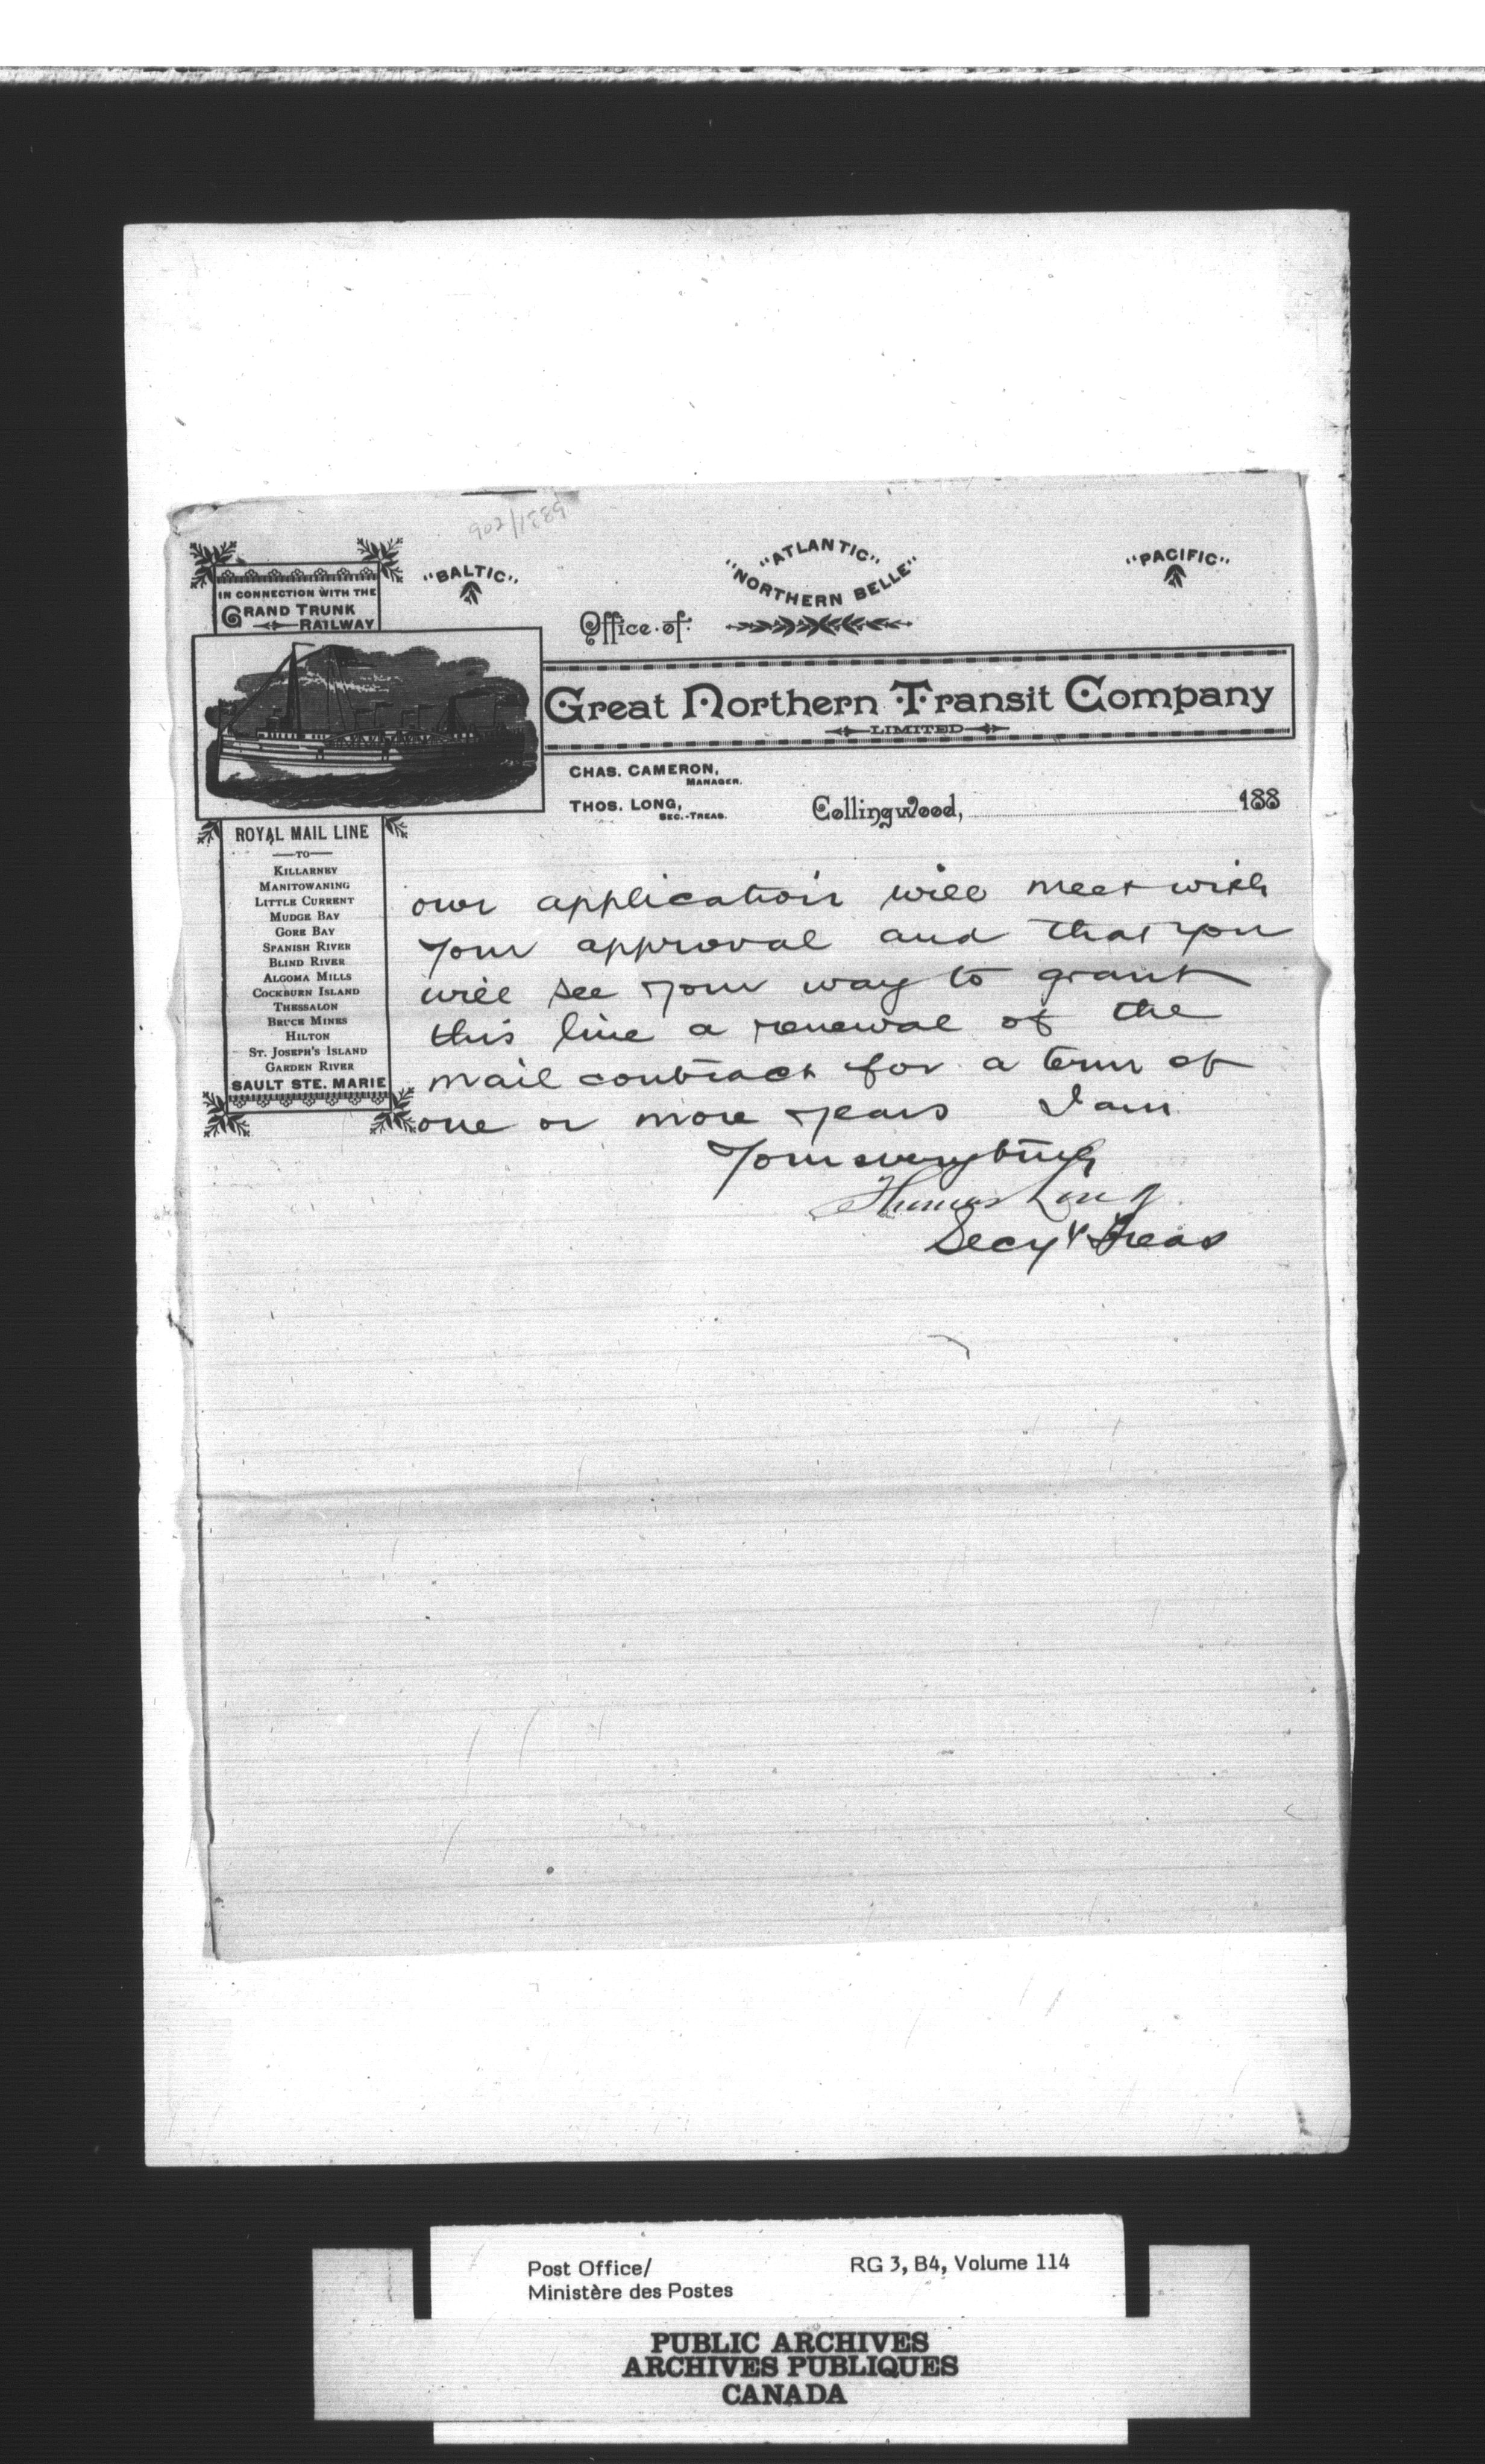 902/1889
IN CONNECTION WITH THE
GRAND TRUNK
RAILWAY
"BALTIC"
"ATLANTIC"
"NORTHERN BELLE"
"PACIFIC"
Office of
Great Northern Transit Company
LIMITED
CHAS. CAMERON,
MANAGER.
THOS. LONG,
SEC.-TREAS.
Collingwood, 188
ROYAL MAIL LINE
TO
KILLARNEY
MANITOWANING
LITTLE CURRENT
MUDGE BAY
GORE BAY
SPANISH RIVER
BLIND RIVER
ALGOMA MILLS
COCKBURN ISLAND
THESSALON
BRUCE MINES
HILTON
ST. JOSEPH'S ISLAND
GARDEN RIVER
SAULT STE. MARIE
our application will meet with
your approval and that you
will see your way to grant
this line a renewal of the
mail contract for a term of
one or more years I am
Yours very truly
Thomas Long
Secy & Treas
Post Office/
Ministère des Postes
RG 3, B4, Volume 114
PUBLIC ARCHIVES
ARCHIVES PUBLIQUES
CANADA